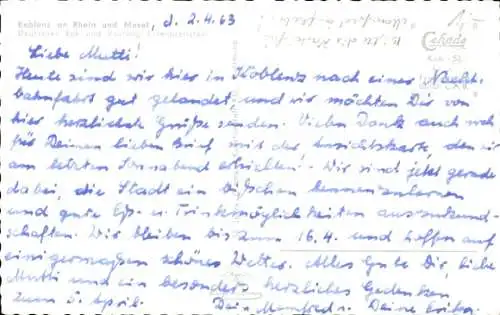 Koblenz an Rhein und Mosel d. 2.4.63
Deutsches Eck und Festung Ehrenbreitstein
Cekade
Liebe Mutti!
Heute sind wir hier in Koblenz nach einer Nacht-
bahnfahrt gut gelandet und wir möchten Dir von
hier herzlichste Grüße senden. Vielen Dank auch noch
für Deinen lieben Brief mit der Ansichtskarte, den wir
am letzten Sonnabend erhielten! Wir sind jetzt gerade
dabei, die Stadt ein bißchen kennenzulernen
und gute Eß- u. Trinkmöglichkeiten auszukund-
schaften. Wir bleiben bis zum 16.4. und hoffen auf
einigermaßen schönes Wetter. Alles Gute Dir, liebe
Mutti und ein besonders herzliches Gedenken
zum 5. April. Dein Manfred u. Deine Erika